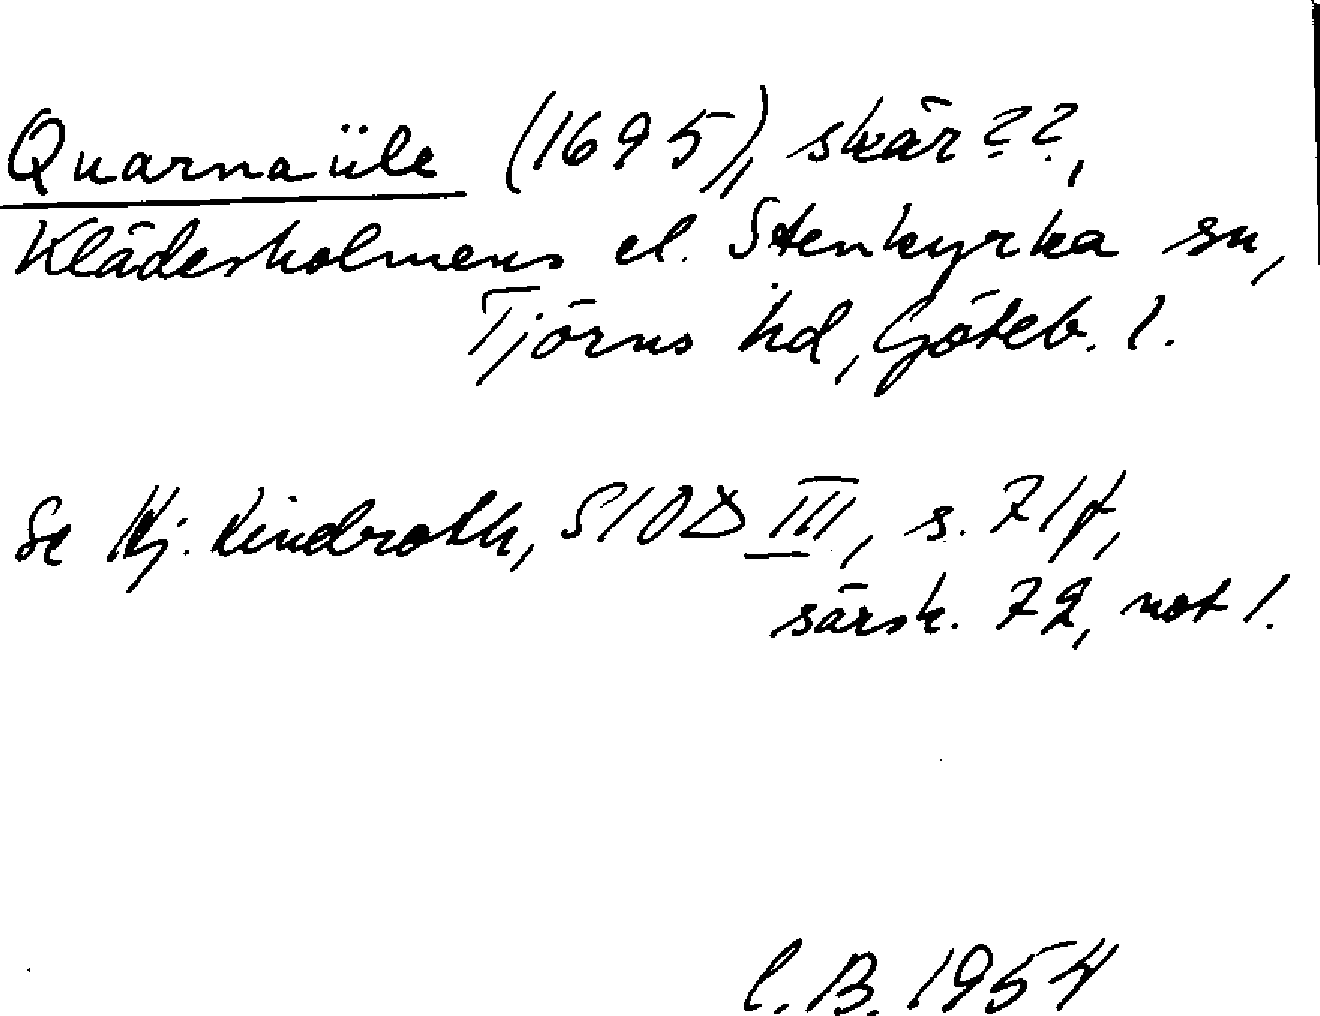 Quarnaüle (1695), skär??,
Klädesholmens el. Stenkyrka sn,
Tjörns hd, Göteb. l.
Se Hj. Lindroth, SIOD III, s. 71 f,
särsk. 72, not 1.
C.B. 1954